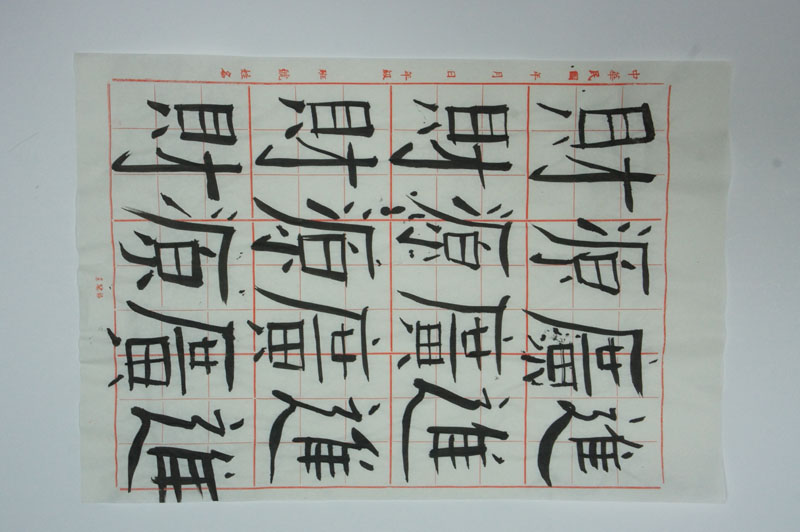 財源廣進
財源廣進
財源廣進
財源廣進
中華民國 年 月 日 年級 班 號 姓名